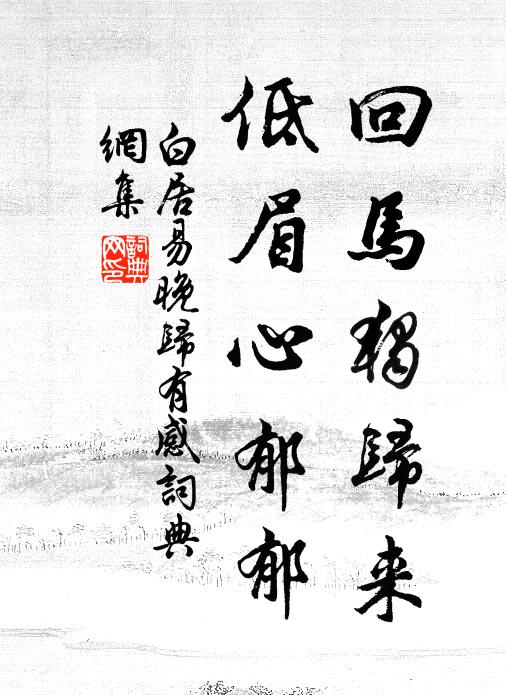 回馬獨歸来
低眉心郁郁
白居易晚歸有感詞典
網集
詞典網印